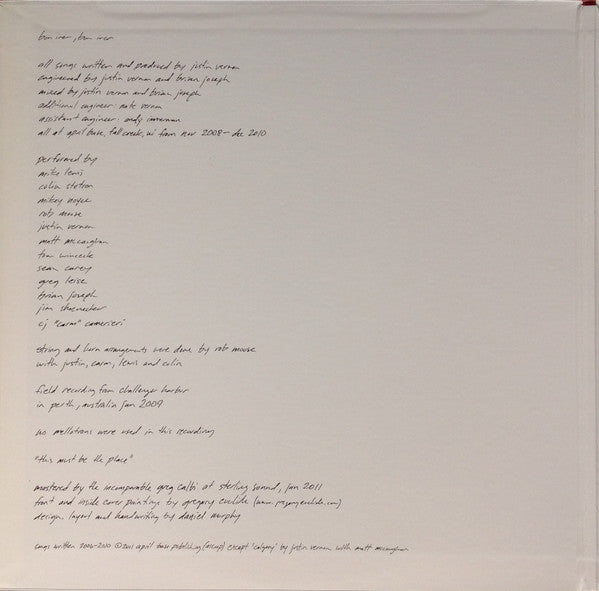 bon iver, bon iver
all songs written and produced by justin vernon
engineered by justin vernon and brian joseph
mixed by justin vernon and brian joseph
additional engineer: nate vernon
assistant engineer:
all at april base, fall creek, wi from nov 2008 - dec 2010
performed by
mike lewis
colin stetson
mikey noyce
rob moose
justin vernon
matt mccaughan
tom wincek
sean carey
greg leisz
brian joseph
jim schoenecker
cj "carm" camerieri
string and horn arrangements were done by rob moose
with justin, carm, lewis and colin
field recording from challenger harbor
in perth, australia jan 2009
no mellotrons were used in this recording
"this must be the place"
mastered by the incomparable greg calbi at sterling sound, jan 2011
front and inside cover paintings by gregory euclide (www.gregoryeuclide.com)
design, layout and handwriting by daniel murphy
songs written 2006-2010 © 2011 april base publishing (ascap) except 'calgary' by justin vernon with matt mccaughan